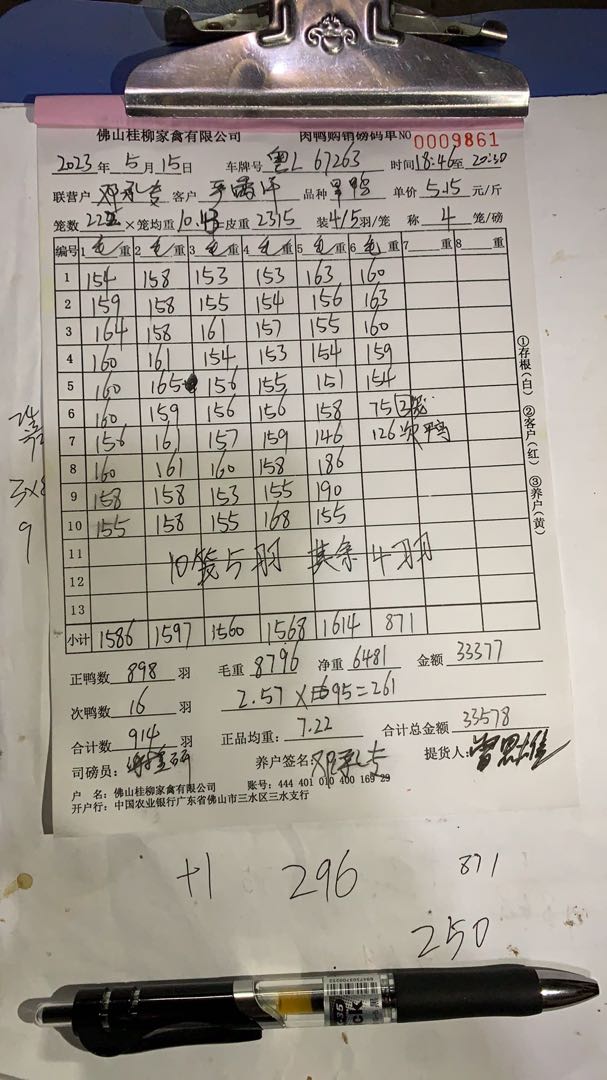 佛山桂柳家禽有限公司 肉鸭购销磅码单 NO 0009861
2023年5月15日 车牌号 粤L 67263 时间 18:46至20:30
联营户 客户 品种 单价 5.15 元/斤
笼数 ×笼均重 皮重 2315 装 4/5 羽/笼 称 4 笼/磅
编号 1 毛重 2 毛重 3 毛重 4 毛重 5 毛重 6 毛重 7 重 8 重
1 154 158 153 153 163 160
2 159 158 155 154 156 163
3 164 158 161 157 155 160
4 160 161 154 153 154 159
5 160 165 156 155 151 154
6 160 159 156 156 158 75
7 156 161 157 159 146 126 次鸭
8 160 161 160 158 186
9 158 158 153 155 190
10 155 158 155 168 155
11
10笼5羽 其余4羽
12
13
小计 1586 1597 1560 1568 1614 871
正鸭数 898 羽 毛重 8796 净重 6481 金额 33377
次鸭数 16 羽 2.57 × 95=261
合计数 914 羽 正品均重: 7.22 合计总金额 33578
司磅员: 养户签名: 提货人:
户 名: 佛山桂柳家禽有限公司 账号: 444 401 010 400 169 29
开户行: 中国农业银行广东省佛山市三水区三水支行
①存根(白) ②客户(红) ③养户(黄)
3×8
9
+1 296 871
250